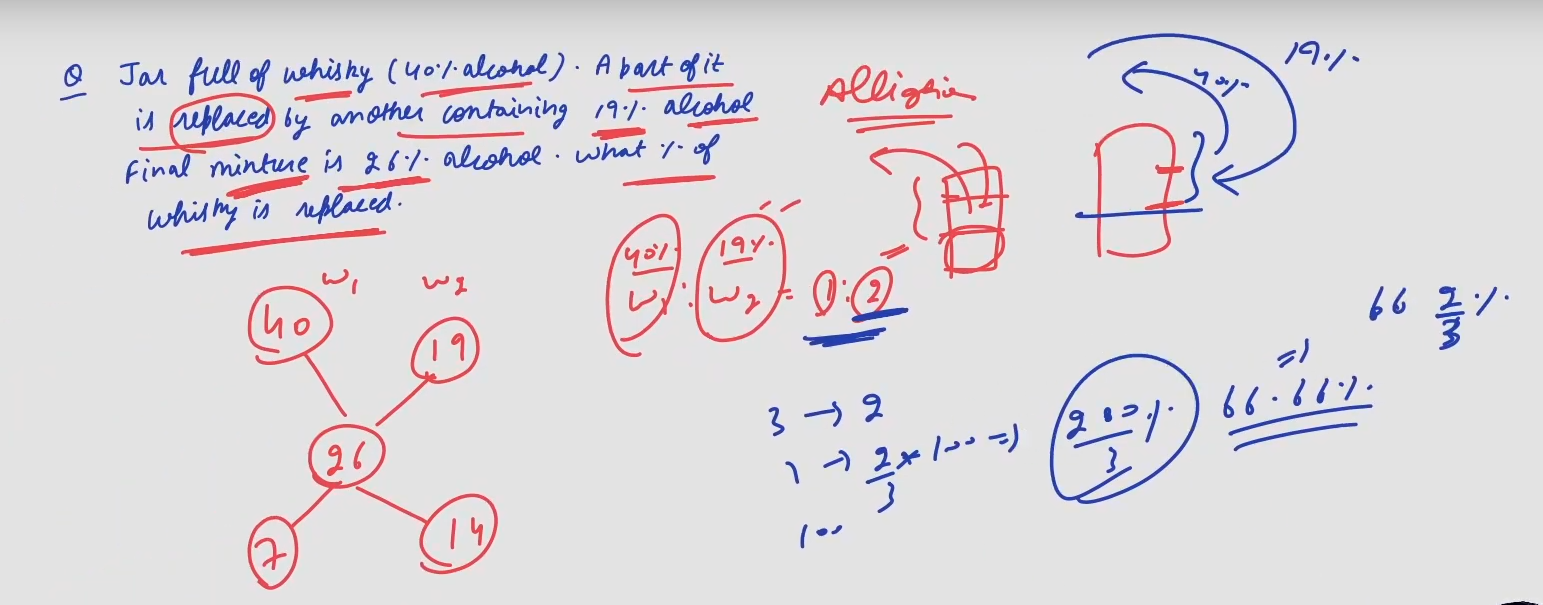 Q Jar full of whisky (40% alcohol). A part of it
is replaced by another containing 19% alcohol
Final minture is 26% alcohol. What % of
whisky is replaced.
Alligation
19%
40%
40% 19%
W1 : W2 = 1:2
W1 W2
40 19
26
7 14
3 → 2
1 → 2/3 × 100 => 200/3 %
100
=> 66.66%
66 2/3 %